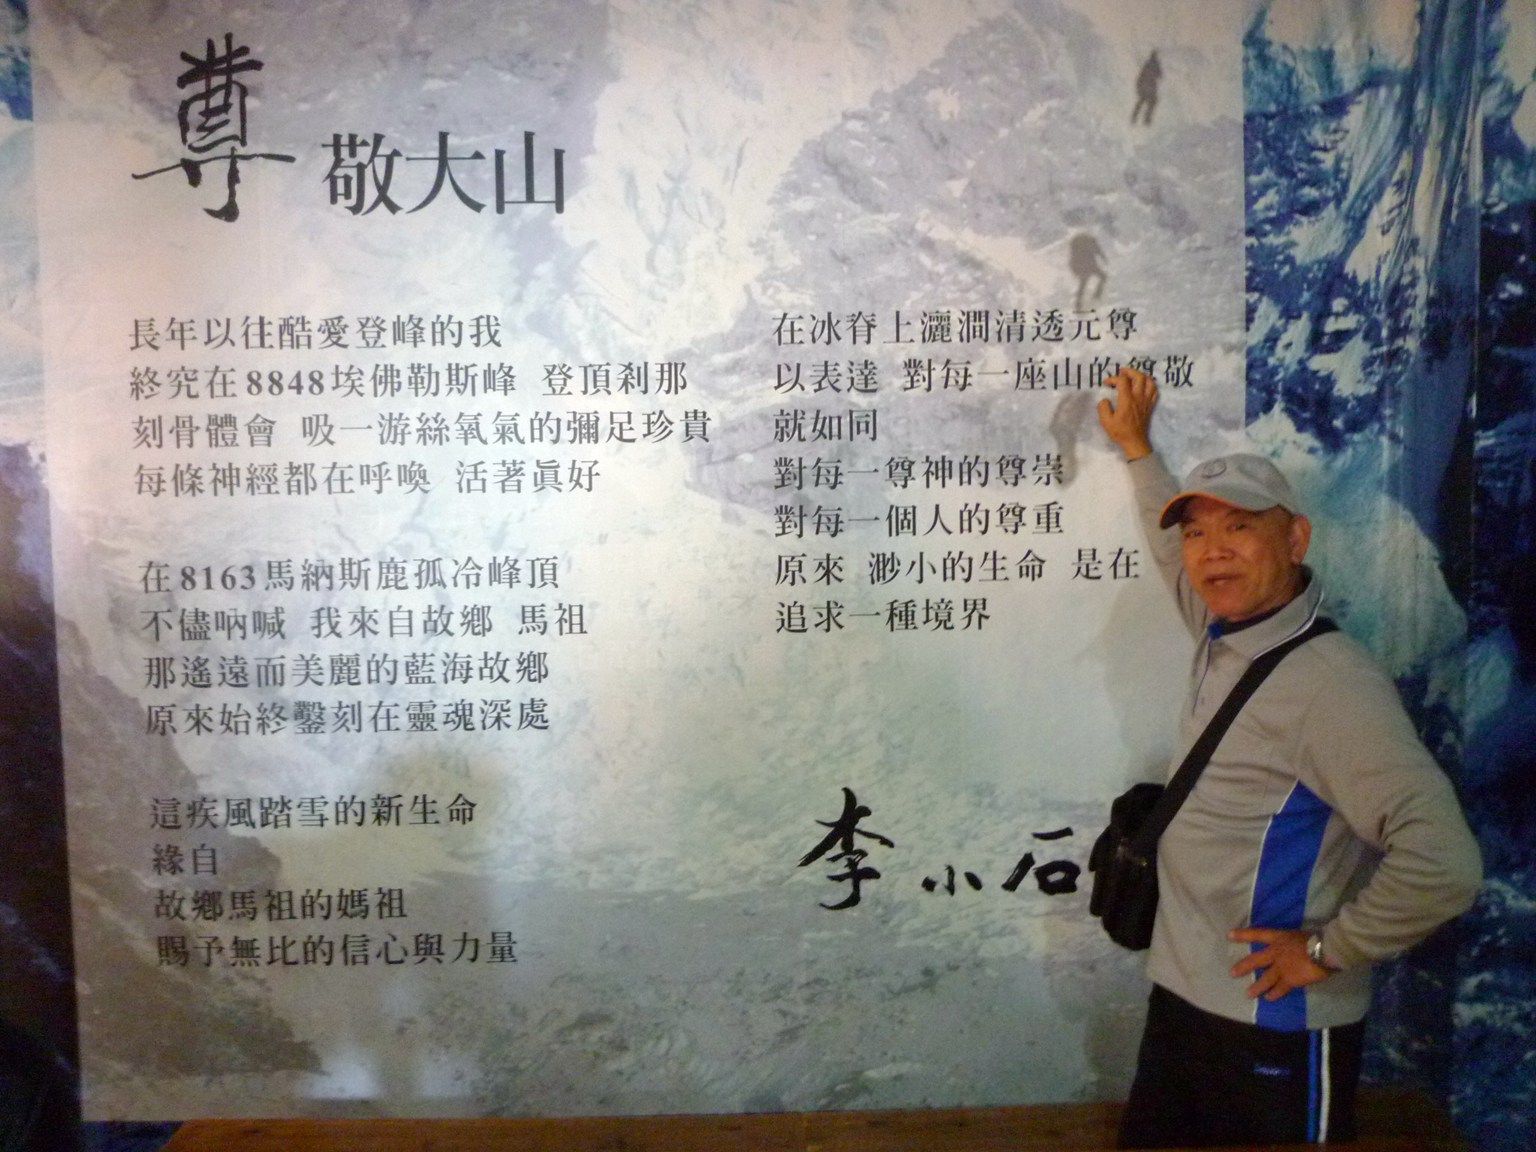 尊敬大山
長年以往酷愛登峰的我
終究在8848埃佛勒斯峰 登頂剎那
刻骨體會 吸一游絲氧氣的彌足珍貴
每條神經都在呼喚 活著真好
在8163馬納斯鹿孤冷峰頂
不儘吶喊 我來自故鄉 馬祖
那遙遠而美麗的藍海故鄉
原來始終鑿刻在靈魂深處
這疾風踏雪的新生命
緣自
故鄉馬祖的媽祖
賜予無比的信心與力量
在冰脊上灑澗清透元尊
以表達 對每一座山的尊敬
就如同
對每一尊神的尊崇
對每一個人的尊重
原來 渺小的生命 是在
追求一種境界
李小石